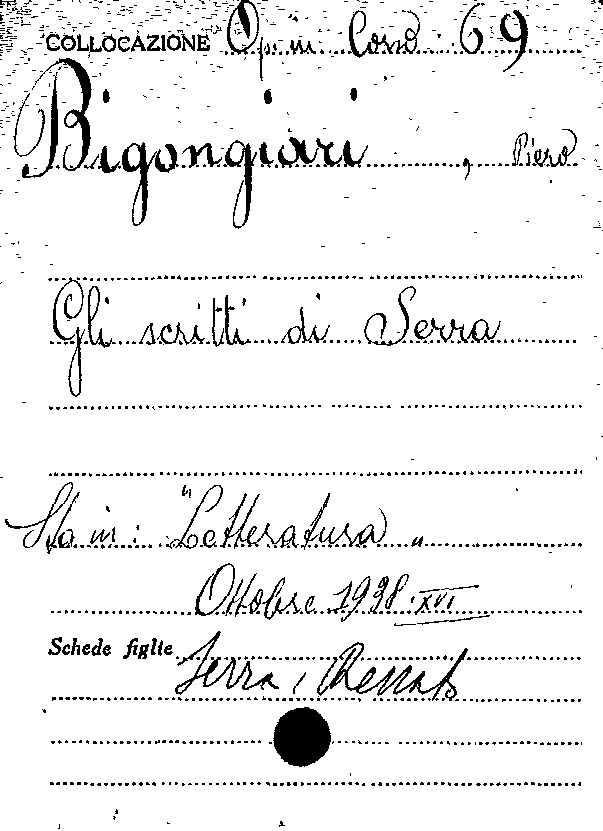 COLLOCAZIONE Op. in Corso 69
Bigongiari, Piero
Gli scritti di Serra
Sta in: "Letteratura"
Ottobre 1938·XVI
Schede figlie Serra, Renato